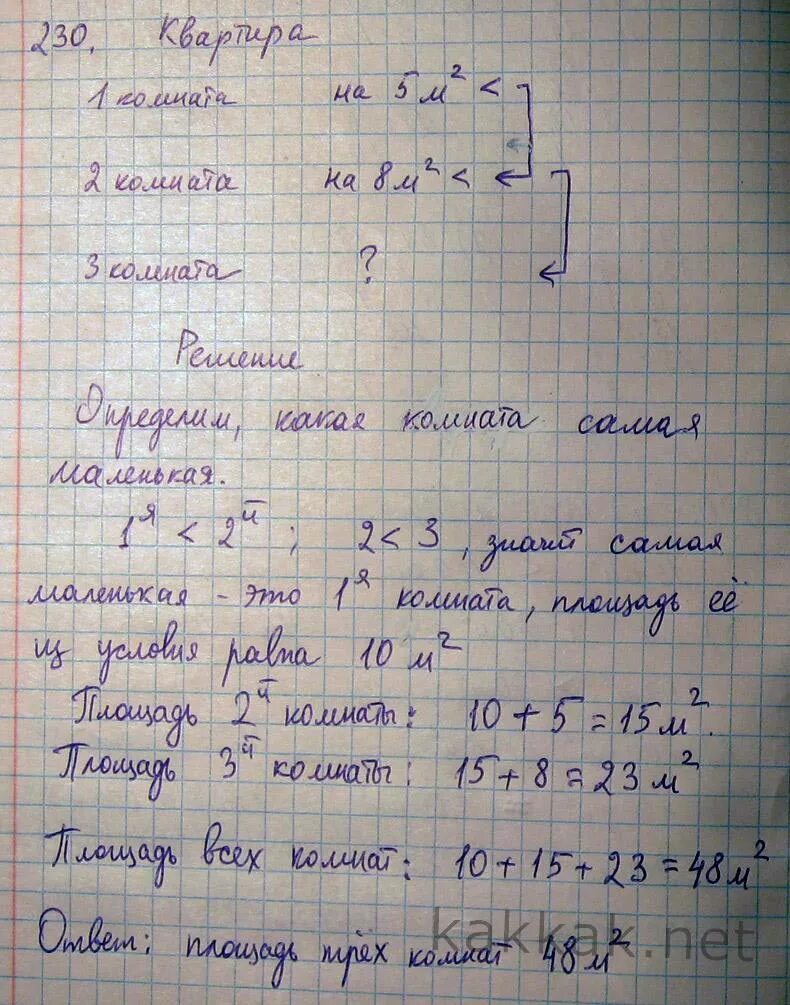 230. Квартира
1 комната на 5 м² <
2 комната на 8 м² <
3 комната ?
Решение
Определим, какая комната самая
маленькая.
1я < 2й ; 2 < 3 , значит самая
маленькая - это 1я комната, площадь её
из условия равна 10 м²
Площадь 2й комнаты: 10 + 5 = 15 м².
Площадь 3й комнаты: 15 + 8 = 23 м²
Площадь всех комнат: 10 + 15 + 23 = 48 м²
Ответ: площадь трёх комнат 48 м²
kakkak.net